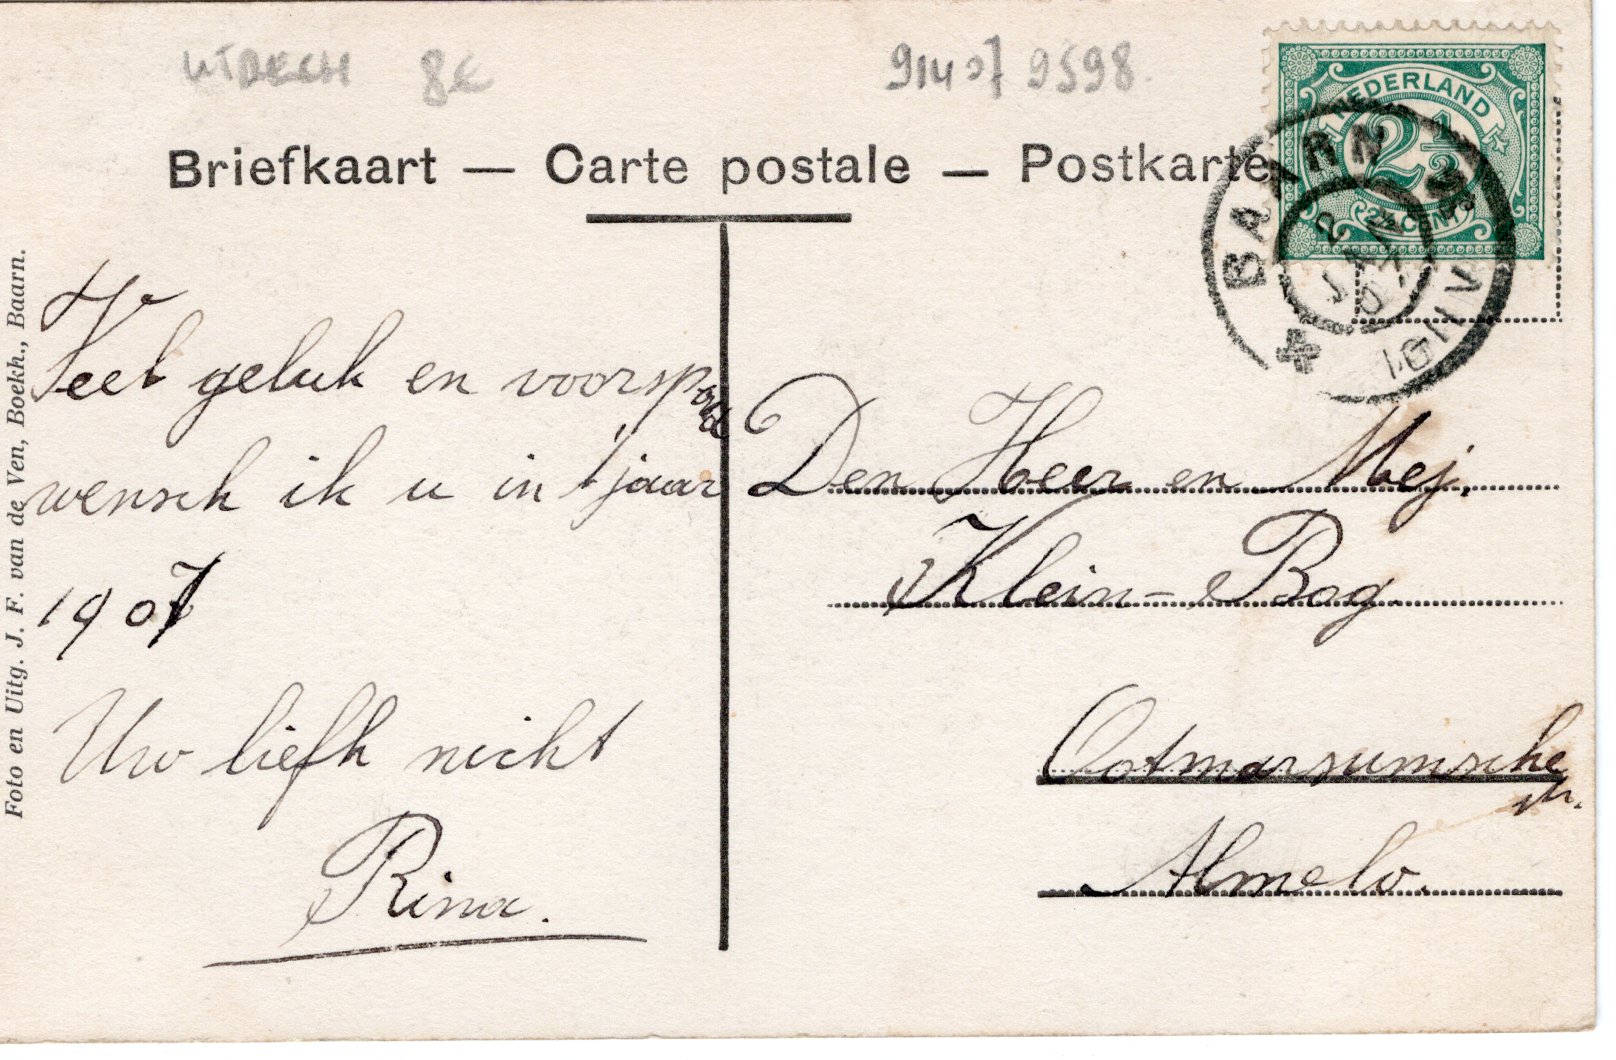 UTRECH 8E
91407 9598.
Briefkaart — Carte postale — Postkarte
NEDERLAND
2½
2½ CENT
BAARN
2 JAN 07
Foto en Uitg. J. F. van de Ven, Boekh., Baarn.
Veel geluk en voorspoed
wensch ik u in 't jaar
1907
Uw liefh nicht
Rina.
Den Heer en Mej.
Klein-Bog
Ootmarsumsche
str.
Almelo.